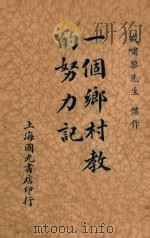 嘯黎先生 傑作
一個鄉村教
的努力記
上海國光書店印行